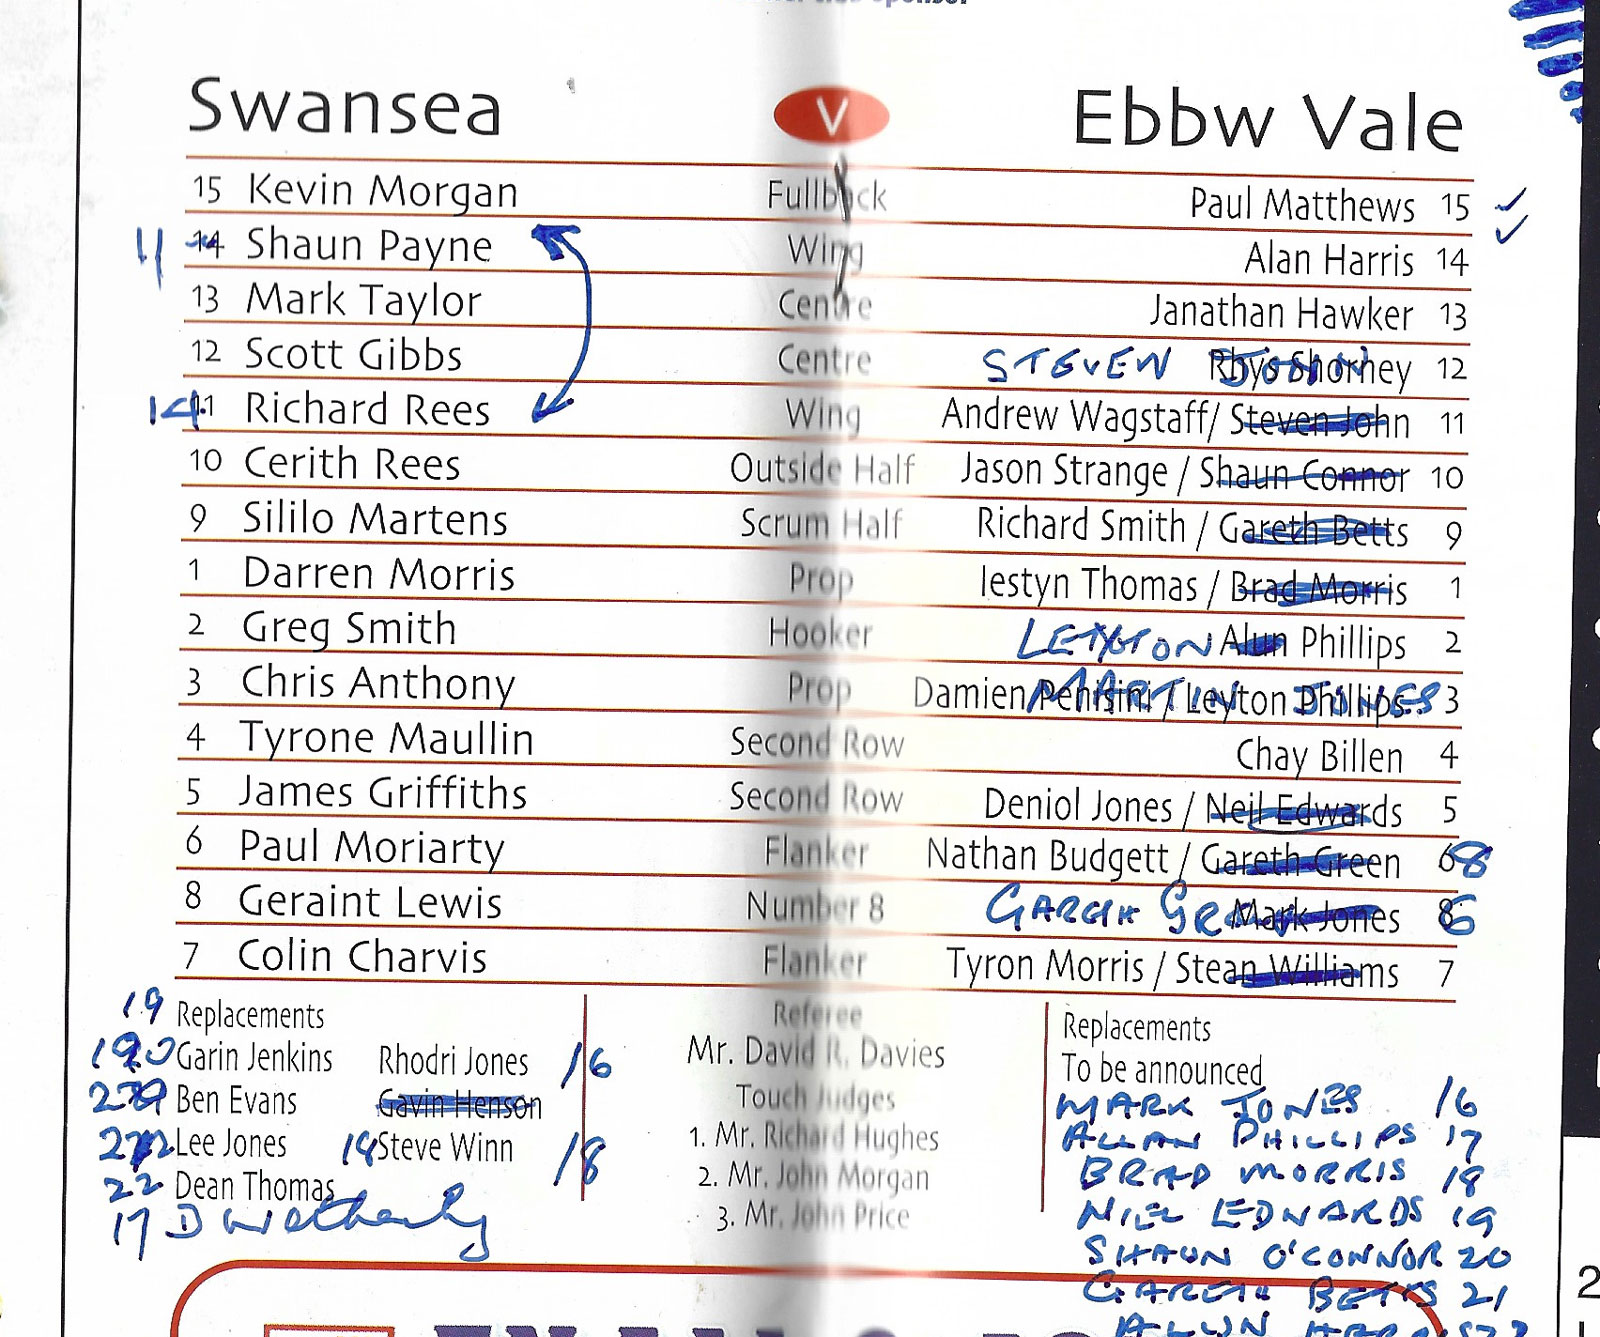 sponsor
Swansea V Ebbw Vale
15 Kevin Morgan Fullback Paul Matthews 15
11 14 Shaun Payne Wing Alan Harris 14
13 Mark Taylor Centre Janathan Hawker 13
12 Scott Gibbs Centre STEVEN JOHN Rhys Shorney 12
14 11 Richard Rees Wing Andrew Wagstaff/ Steven John 11
10 Cerith Rees Outside Half Jason Strange / Shaun Connor 10
9 Sililo Martens Scrum Half Richard Smith / Gareth Betts 9
1 Darren Morris Prop Iestyn Thomas / Brad Morris 1
2 Greg Smith Hooker LEYTON Alun Phillips 2
3 Chris Anthony Prop Damien Penisini / Leyton Phillips MARTIN JONES 3
4 Tyrone Maullin Second Row Chay Billen 4
5 James Griffiths Second Row Deniol Jones / Neil Edwards 5
6 Paul Moriarty Flanker Nathan Budgett / Gareth Green 6 8
8 Geraint Lewis Number 8 GARETH GREEN Mark Jones 8 6
7 Colin Charvis Flanker Tyron Morris / Stean Williams 7
19 Replacements
Garin Jenkins Rhodri Jones 16
Ben Evans Gavin Henson
Lee Jones 18 Steve Winn 18
22 Dean Thomas
17 D Wetherley
Referee
Mr. David R. Davies
Touch Judges
1. Mr. Richard Hughes
2. Mr. John Morgan
3. Mr. John Price
Replacements
To be announced
MARK JONES 16
ALLAN PHILLIPS 17
BRAD MORRIS 18
NIEL EDWARDS 19
SHAUN O'CONNOR 20
GARETH BETTS 21
2